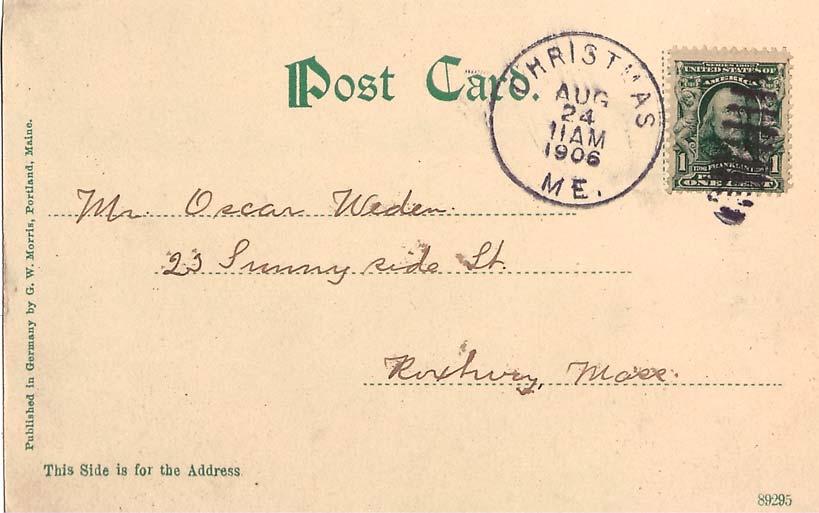 Post Card.
CHRISTMAS
AUG
24
11AM
1906
ME.
SERIES 1902
UNITED STATES OF
AMERICA
1 FRANKLIN 1
ONE CENT
Mr. Oscar Weden.
23 Sunny side St.
Roxbury, Mass.
Published in Germany by G. W. Morris, Portland, Maine.
This Side is for the Address
89295